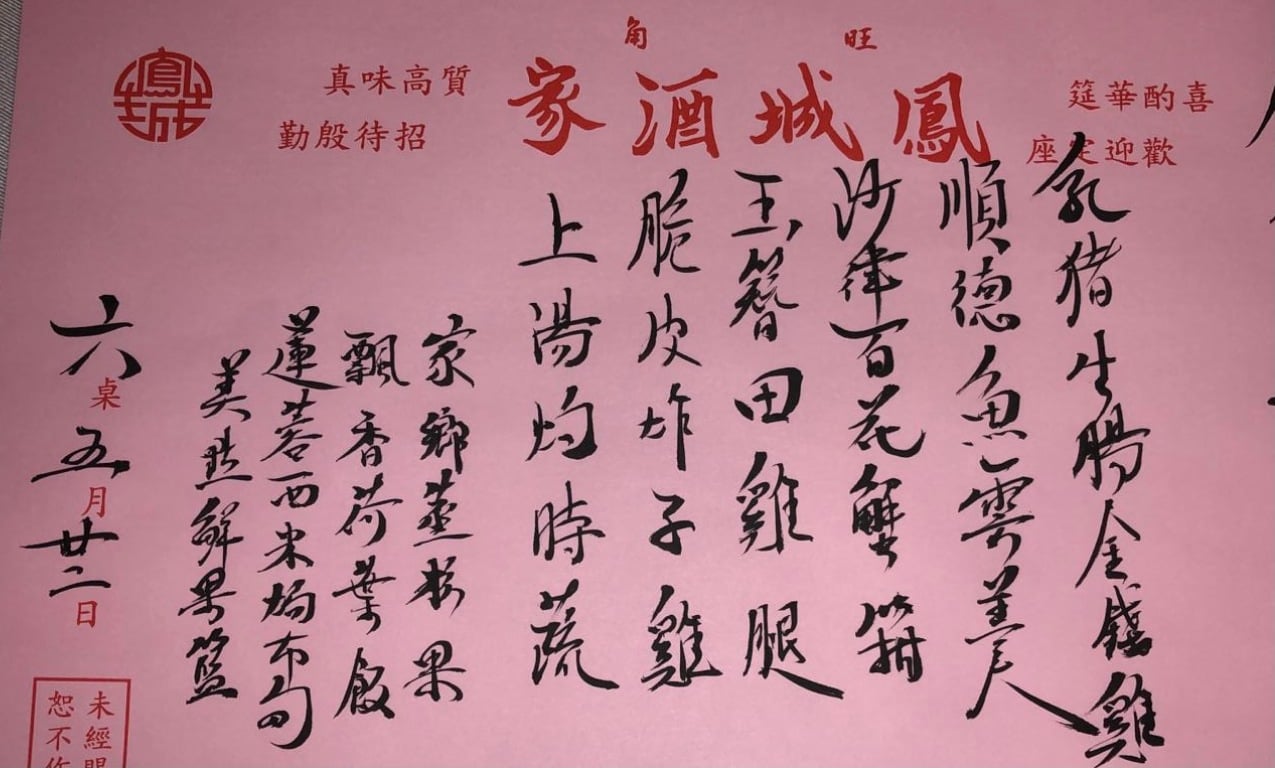 旺角
鳳城酒家
喜酌華筵
歡迎定座
質高味真
招待殷勤
鳳城
乳猪生腸金錢雞
順德魚雲羹
沙律百花蟹箝
玉簪田雞腿
脆皮炸子雞
上湯灼時蔬
家鄉蒸粉果
飄香荷葉飯
蓮蓉西米焗布甸
美點鮮果籃
六桌五月廿二日
未經
恕不